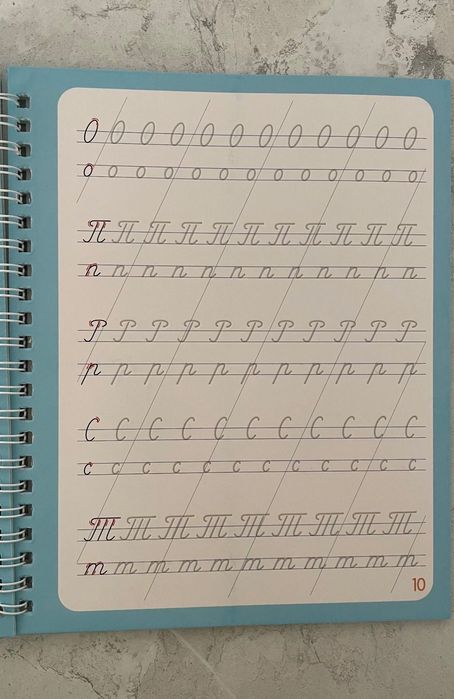 О О О О О О О О О О О О
о о о о о о о о о о о о о
П П П П П П П П П П П
п п п п п п п п п п п п
Р Р Р Р Р Р Р Р Р Р Р
р р р р р р р р р р р
С С С С С С С С С С С
с с с с с с с с с с с с
Т Т Т Т Т Т Т Т Т
т т т т т т т т т т т
10